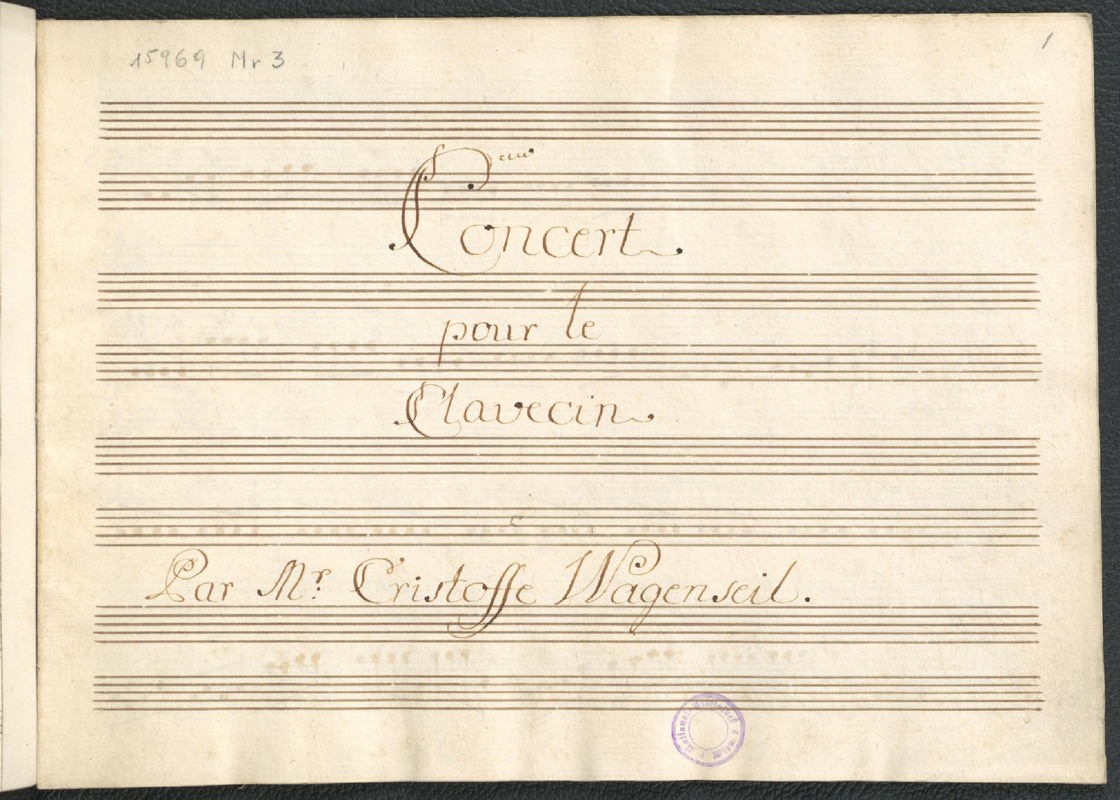 15969 Nr 3
1
Concert
pour le
Clavecin
Par Mr. Cristoffe Wagenseil.